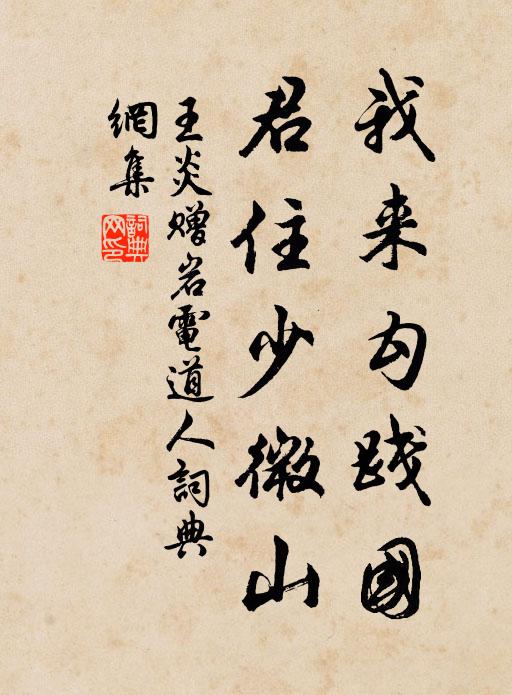 我来勾践國
君住少微山
王炎赠岩電道人詞典
網集
詞典
网印